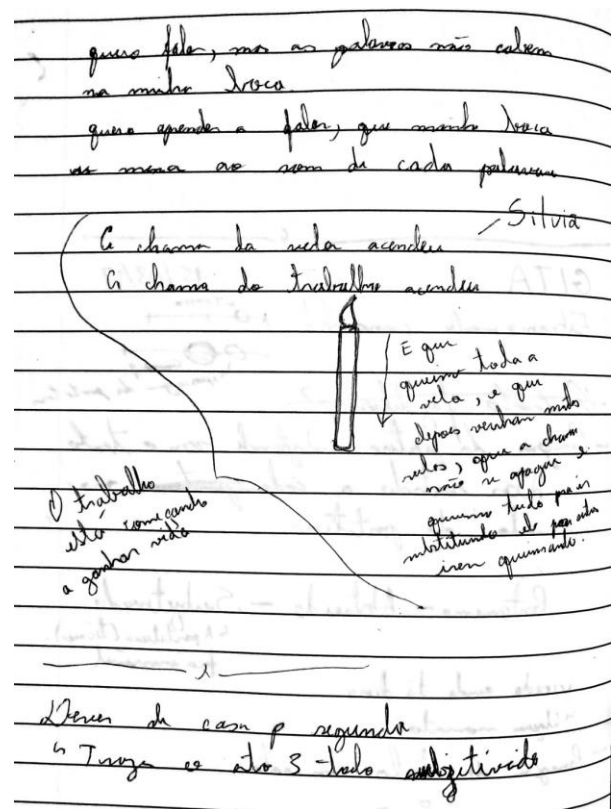 quero falar, mas as palavras não cabem
na minha boca.
quero aprender a falar, que minha boca
se mova ao som de cada palavra
- Silvia
A chama da vela acendeu
A chama do trabalho acendeu
E que
queime toda a
vela, e que
depois venham mais
velas, que a chama
não se apague e
queime tudo para ir
substituindo ele por outros
irem queimando.
O trabalho
está começando
a ganhar vida
Dever de casa p segunda
Trazer o ato 3 todo subjetivado